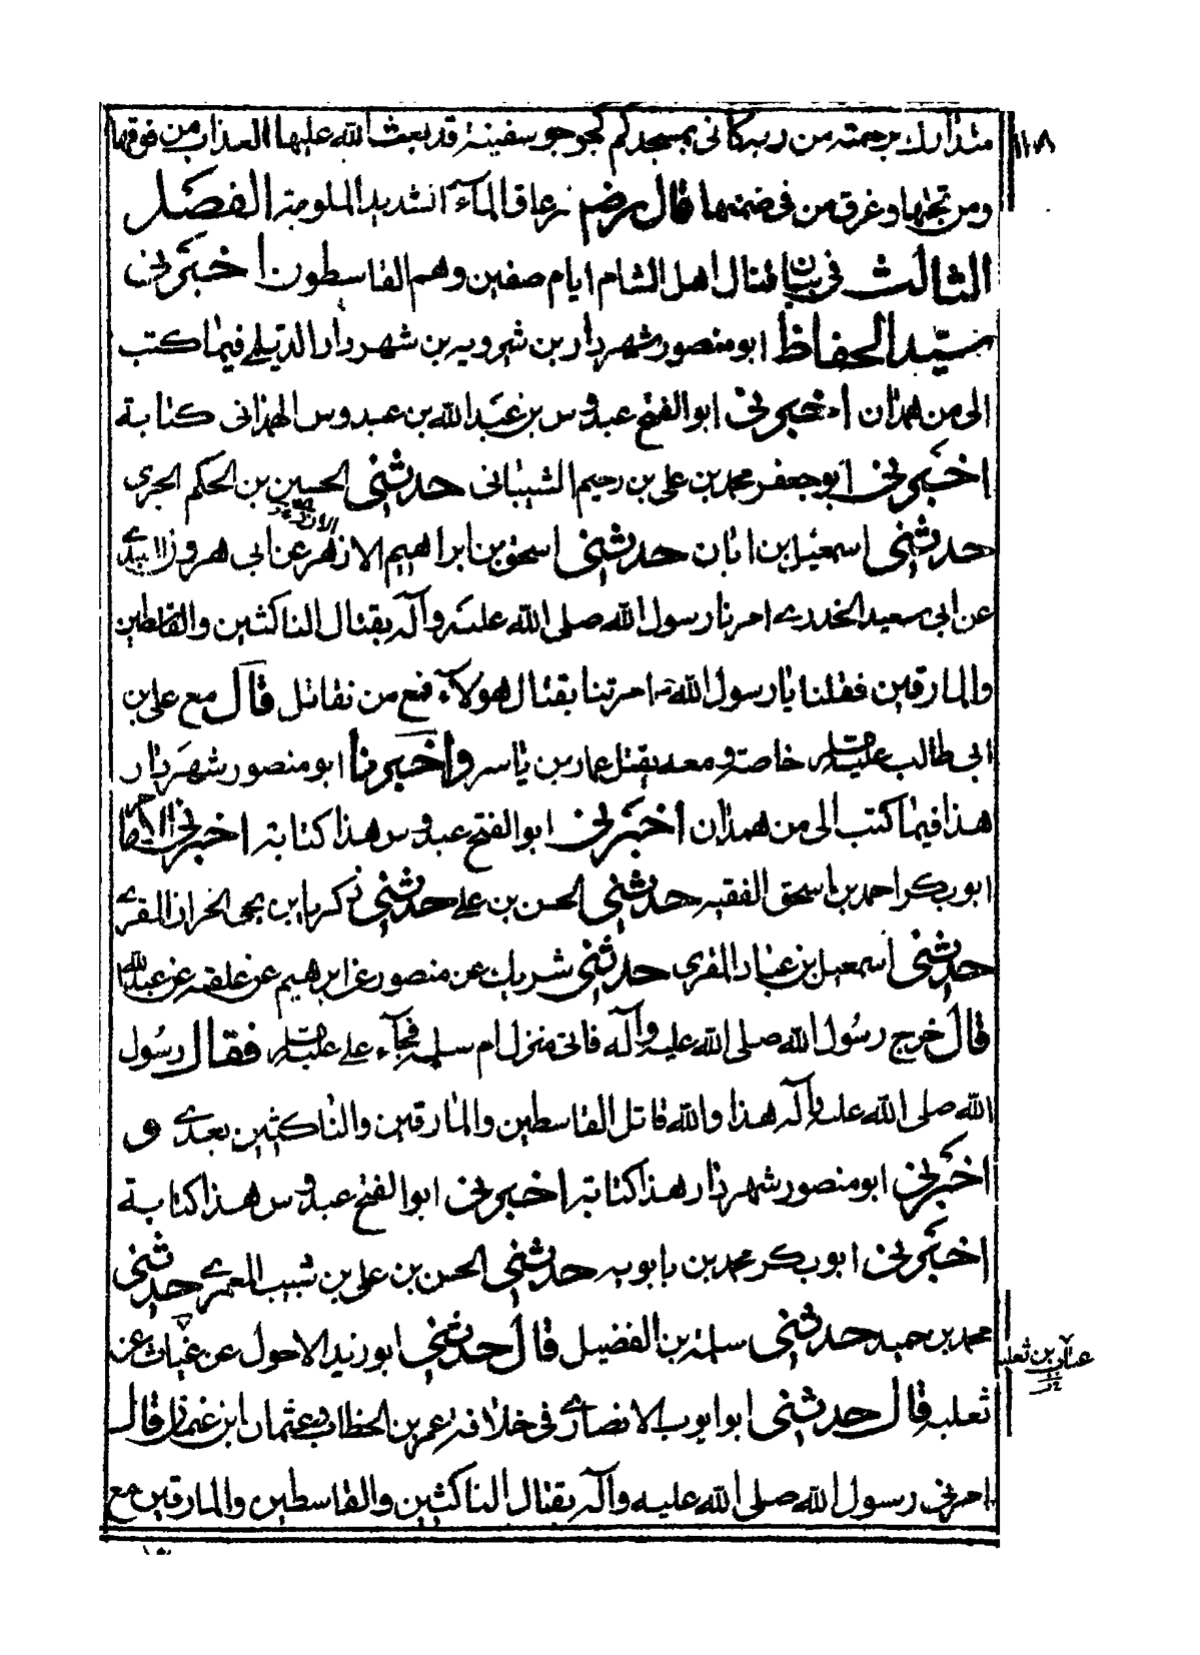 متدارك برحمته من ربه كانى بمسجدكم كجوجو سفينة قد بعث الله عليها العذاب من فوقها
١١٨
ومن تحتها وغرق من فى ضمنها قال رضى زعاق المآء الشديد الملوحة الفصل
الثالث فى بيان قتال اهل الشام ايام صفين وهم القاسطون اخبرنى
سيد الحفاظ ابومنصور شهردار بن شيرويه بن شهردار الديلمى فيما كتب
الى من همدان اخبرنى ابوالفتح عبدوس بن عبدالله بن عبدوس الهمدانى كتابة
اخبرنى ابوجعفر محمد بن على بن رحيم الشيبانى حدثنى الحسين بن الحكم الحبرى
حدثنى اسمعيل بن ابان حدثنى اسحق بن ابراهيم الازهر عن ابى هرون العبدى
عن ابى سعيد الخدرى امرنا رسول الله صلى الله عليه وآله بقتال الناكثين والقاسطين
والمارقين فقلنا يا رسول الله امرتنا بقتال هولآء فمع من نقاتل قال مع على بن
ابى طالب خاصة ومعه يقتل عمار بن ياسر واخبرنا ابومنصور شهردار
هذا فيما كتب الى من همدان اخبرنى ابوالفتح عبدوس هذا كتابة اخبرنى الامام
ابوبكر احمد بن اسحق الفقيه حدثنى الحسن بن على حدثنى زكريا بن يحيى الخراز المقرى
حدثنى اسمعيل بن عباد المقرى حدثنى شريك عن منصور عن ابرهيم عن علقمة عن عبدالله
قال خرج رسول الله صلى الله عليه وآله فاتى منزل ام سلمة فجآء على عليه السلام فقال رسول
الله صلى الله عليه وآله هذا والله قاتل القاسطين والمارقين والناكثين بعدى و
اخبرنى ابومنصور شهردار هذا كتابة اخبرنى ابوالفتح عبدوس هذا كتابة
اخبرنى ابوبكر محمد بن بابويه حدثنى الحسن بن على بن شبيب المعمرى حدثنى
محمد بن حميد حدثنى سلمة بن الفضيل قال حدثنى ابوزيد الاحول عن غياث عن
عتاب بن ثعلبة
ثعلبه قال حدثنى ابوايوب الانصارى فى خلافة عمر بن الخطاب قال
امرنى رسول الله صلى الله عليه وآله بقتال الناكثين والقاسطين والمارقين مع